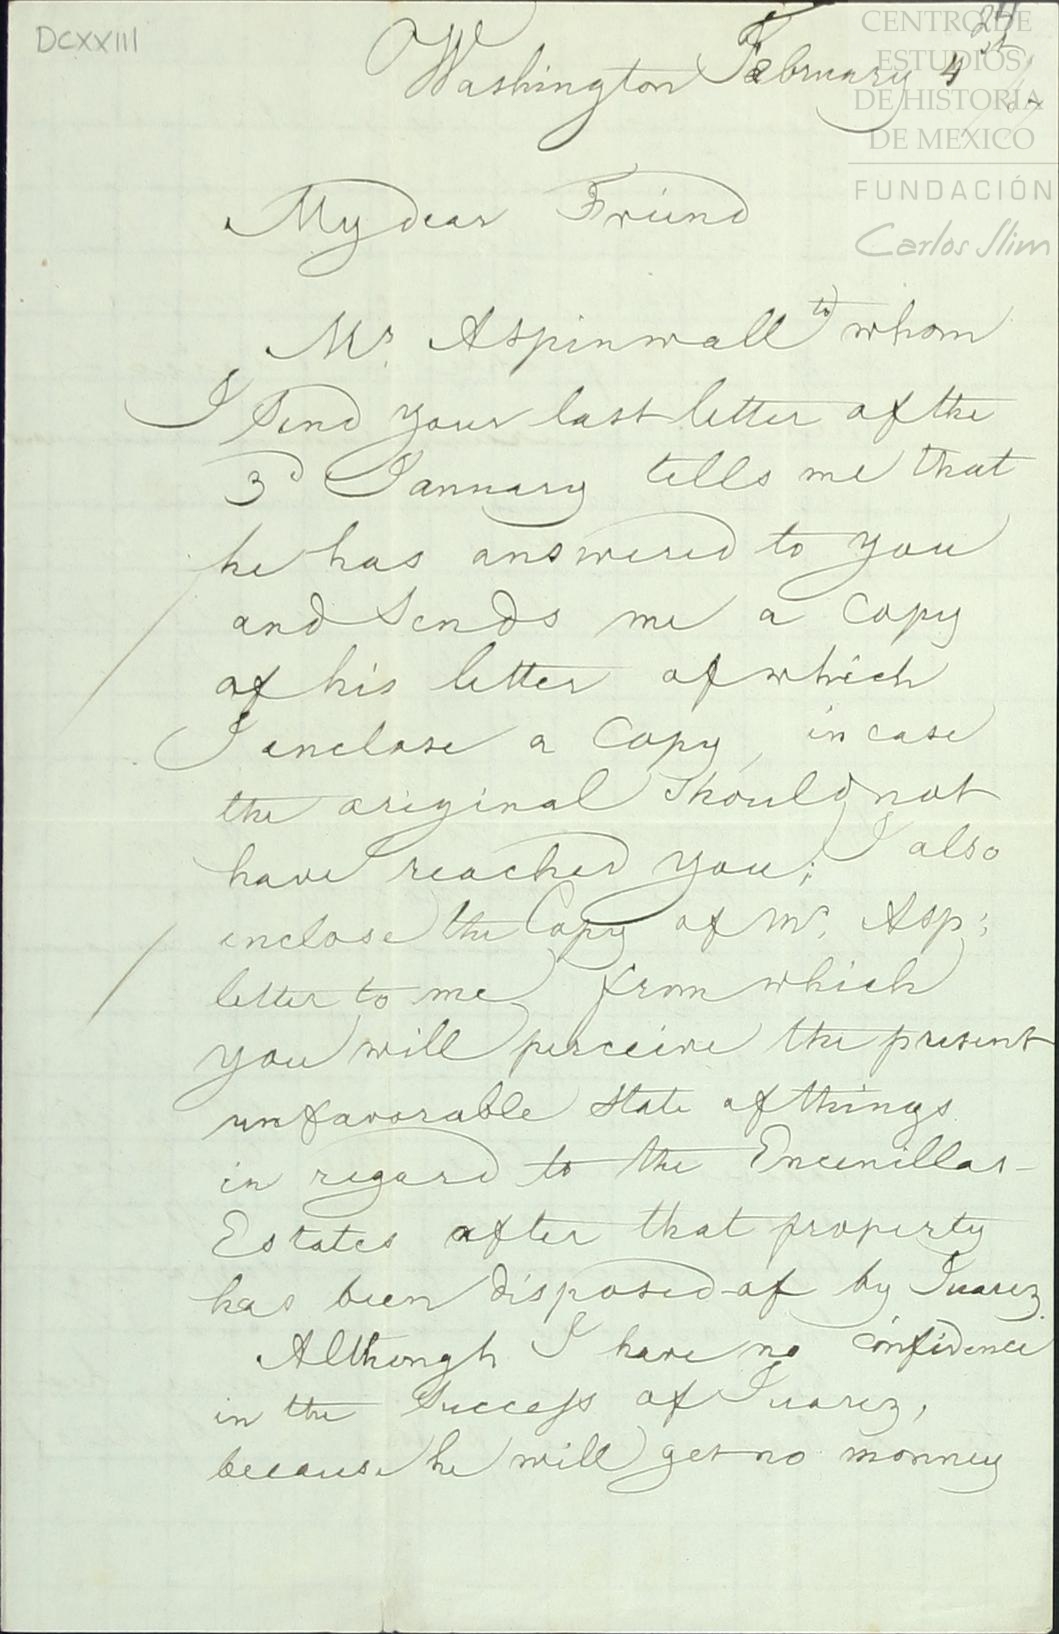 DCXXIII
CENTRO DE
ESTUDIOS
DE HISTORIA
DE MEXICO
FUNDACIÓN
Carlos Slim
Washington February 4
My dear Friend
Mr. Aspinwall to whom
I send your last letter of the
3d Jannuary tells me that
he has answered to you
and sends me a copy
of his letter of which
I enclose a Copy, in case
the original should not
have reached you; I also
inclose the Copy of Mr. Asp:
letter to me from which
you will perceive the present
unfavorable state of things
in regard to the Encinillas-
Estates after that property
has been disposed of by Juarez.
Although I have no confidence
in the success of Juarez,
because he will get no monney